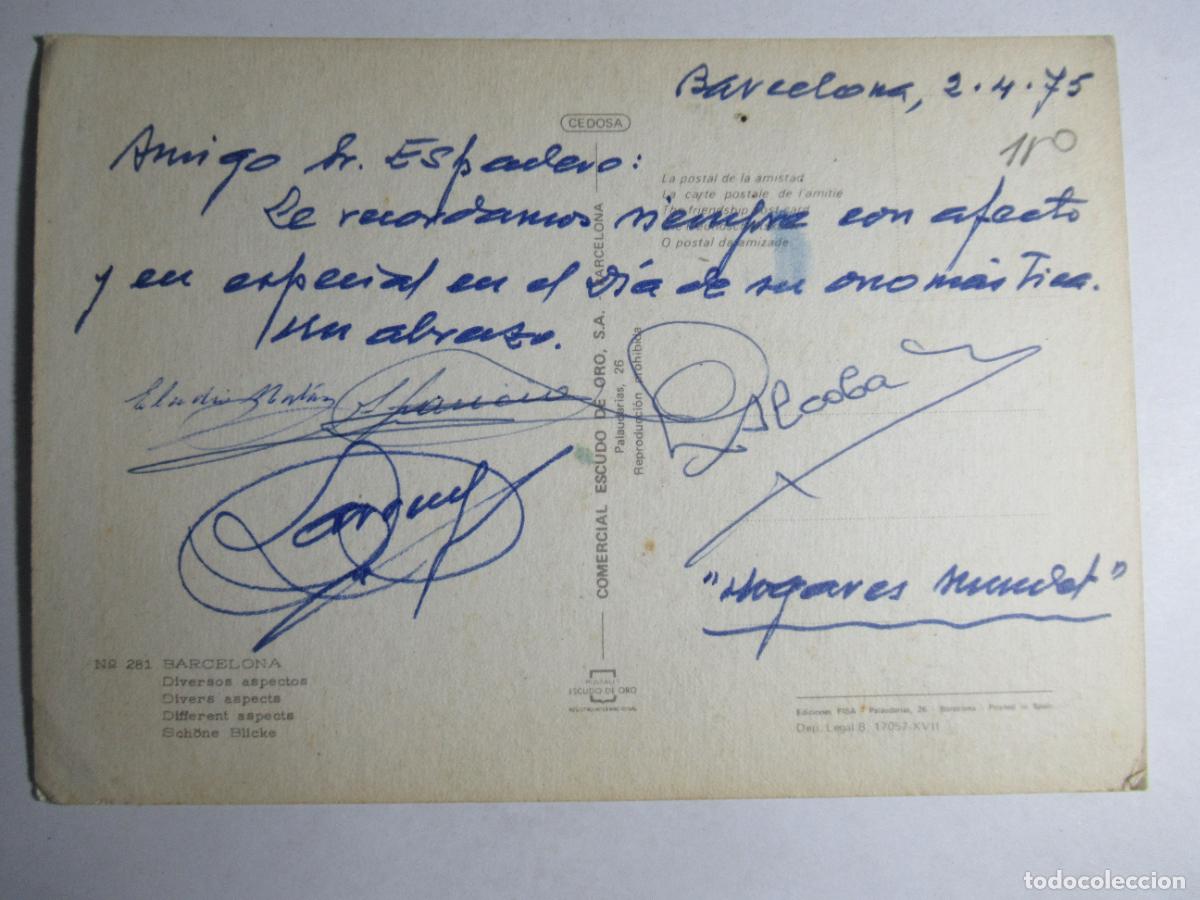 Barcelona, 2.4.75
Amigo Sr. Espadero:
Le recordamos siempre con afecto
y en especial en el Día de su onomástica.
Un abrazo.
Alcoba
"Hogares Mundet"
CEDOSA
La postal de la amistad
La carte postale de l'amitié
The friendship post card
O postal da amizade
COMERCIAL ESCUDO DE ORO, S.A. BARCELONA
Palaudarias, 26
Reproducción prohibida
Nº 281 BARCELONA
Diversos aspectos
Divers aspects
Different aspects
Schöne Blicke
POSTALES
ESCUDO DE ORO
REGISTRO INTERNACIONAL
Ediciones FISA - Palaudarias, 26 - Barcelona - Printed in Spain
Dep. Legal B. 17057-XVII
todocoleccion